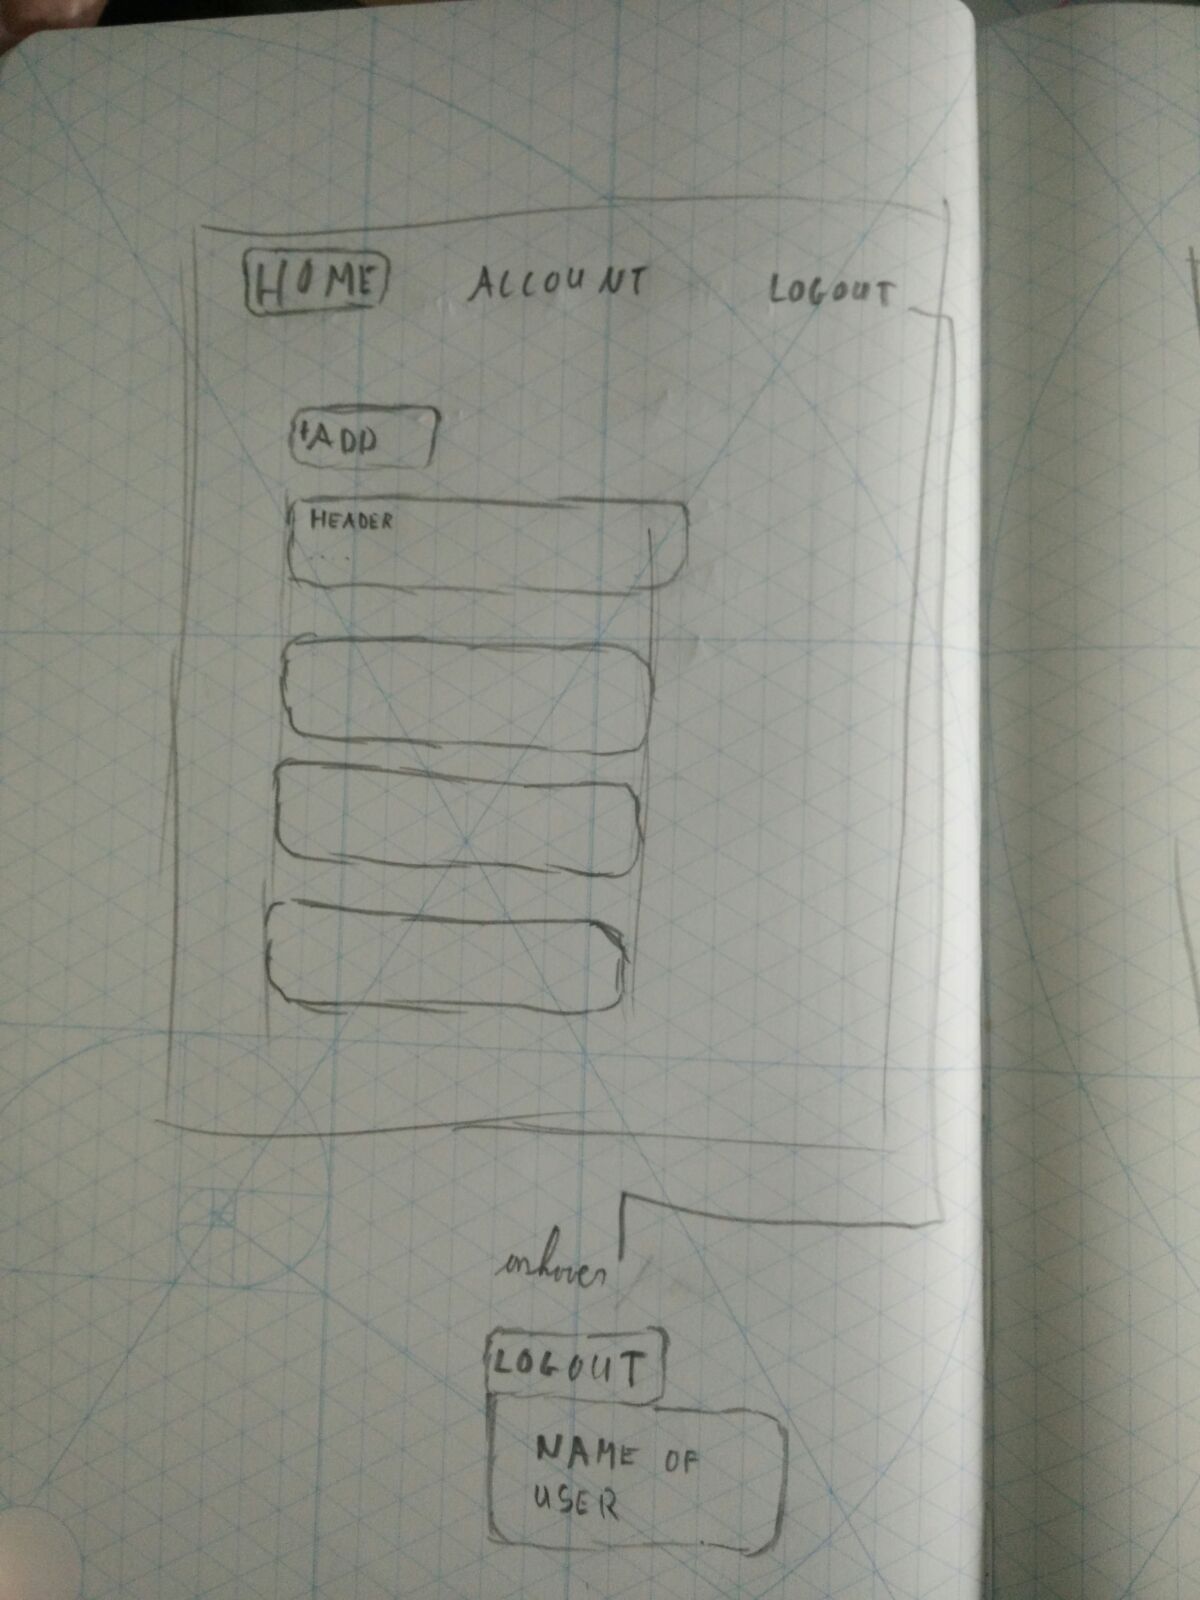 HOME ACCOUNT LOGOUT
+ADD
HEADER
....
onhover
LOGOUT
NAME OF
USER